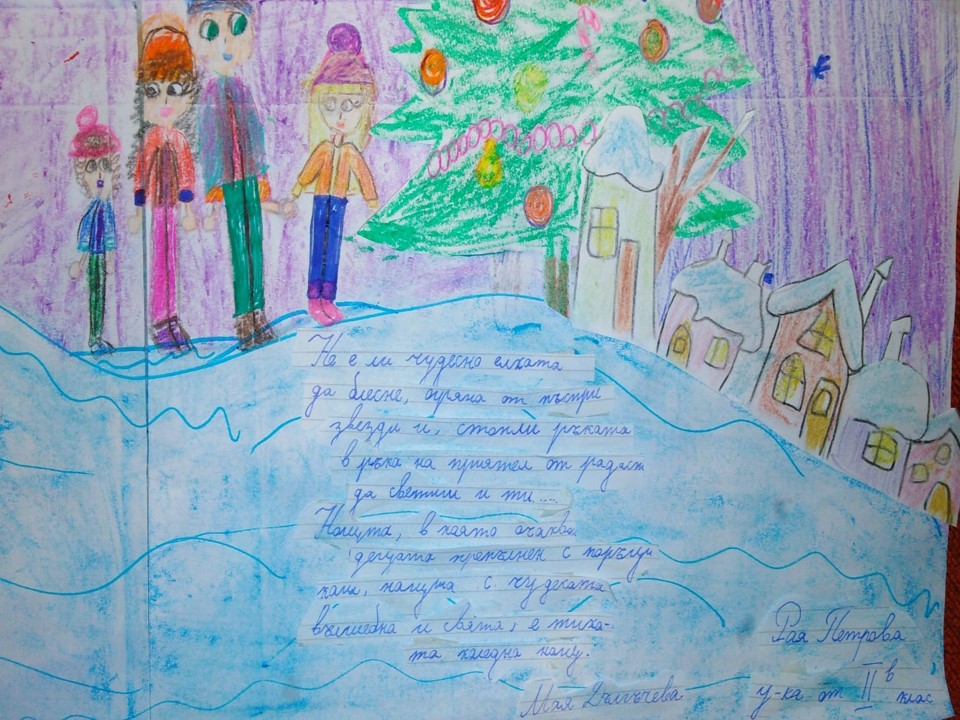 Не е ли чудесно елхата
да блесне, огряна от пъстри
звезди и, стопли ръката
в ръка на приятел от радост
да светиш и ти....
Нощта, в която очаква
децата препълнен с
нощта с чудесата
вълшебна и свята, е тиха-
та коледна нощ.
Рая Петрова
Мая Дългъчева
у-ка от II в клас